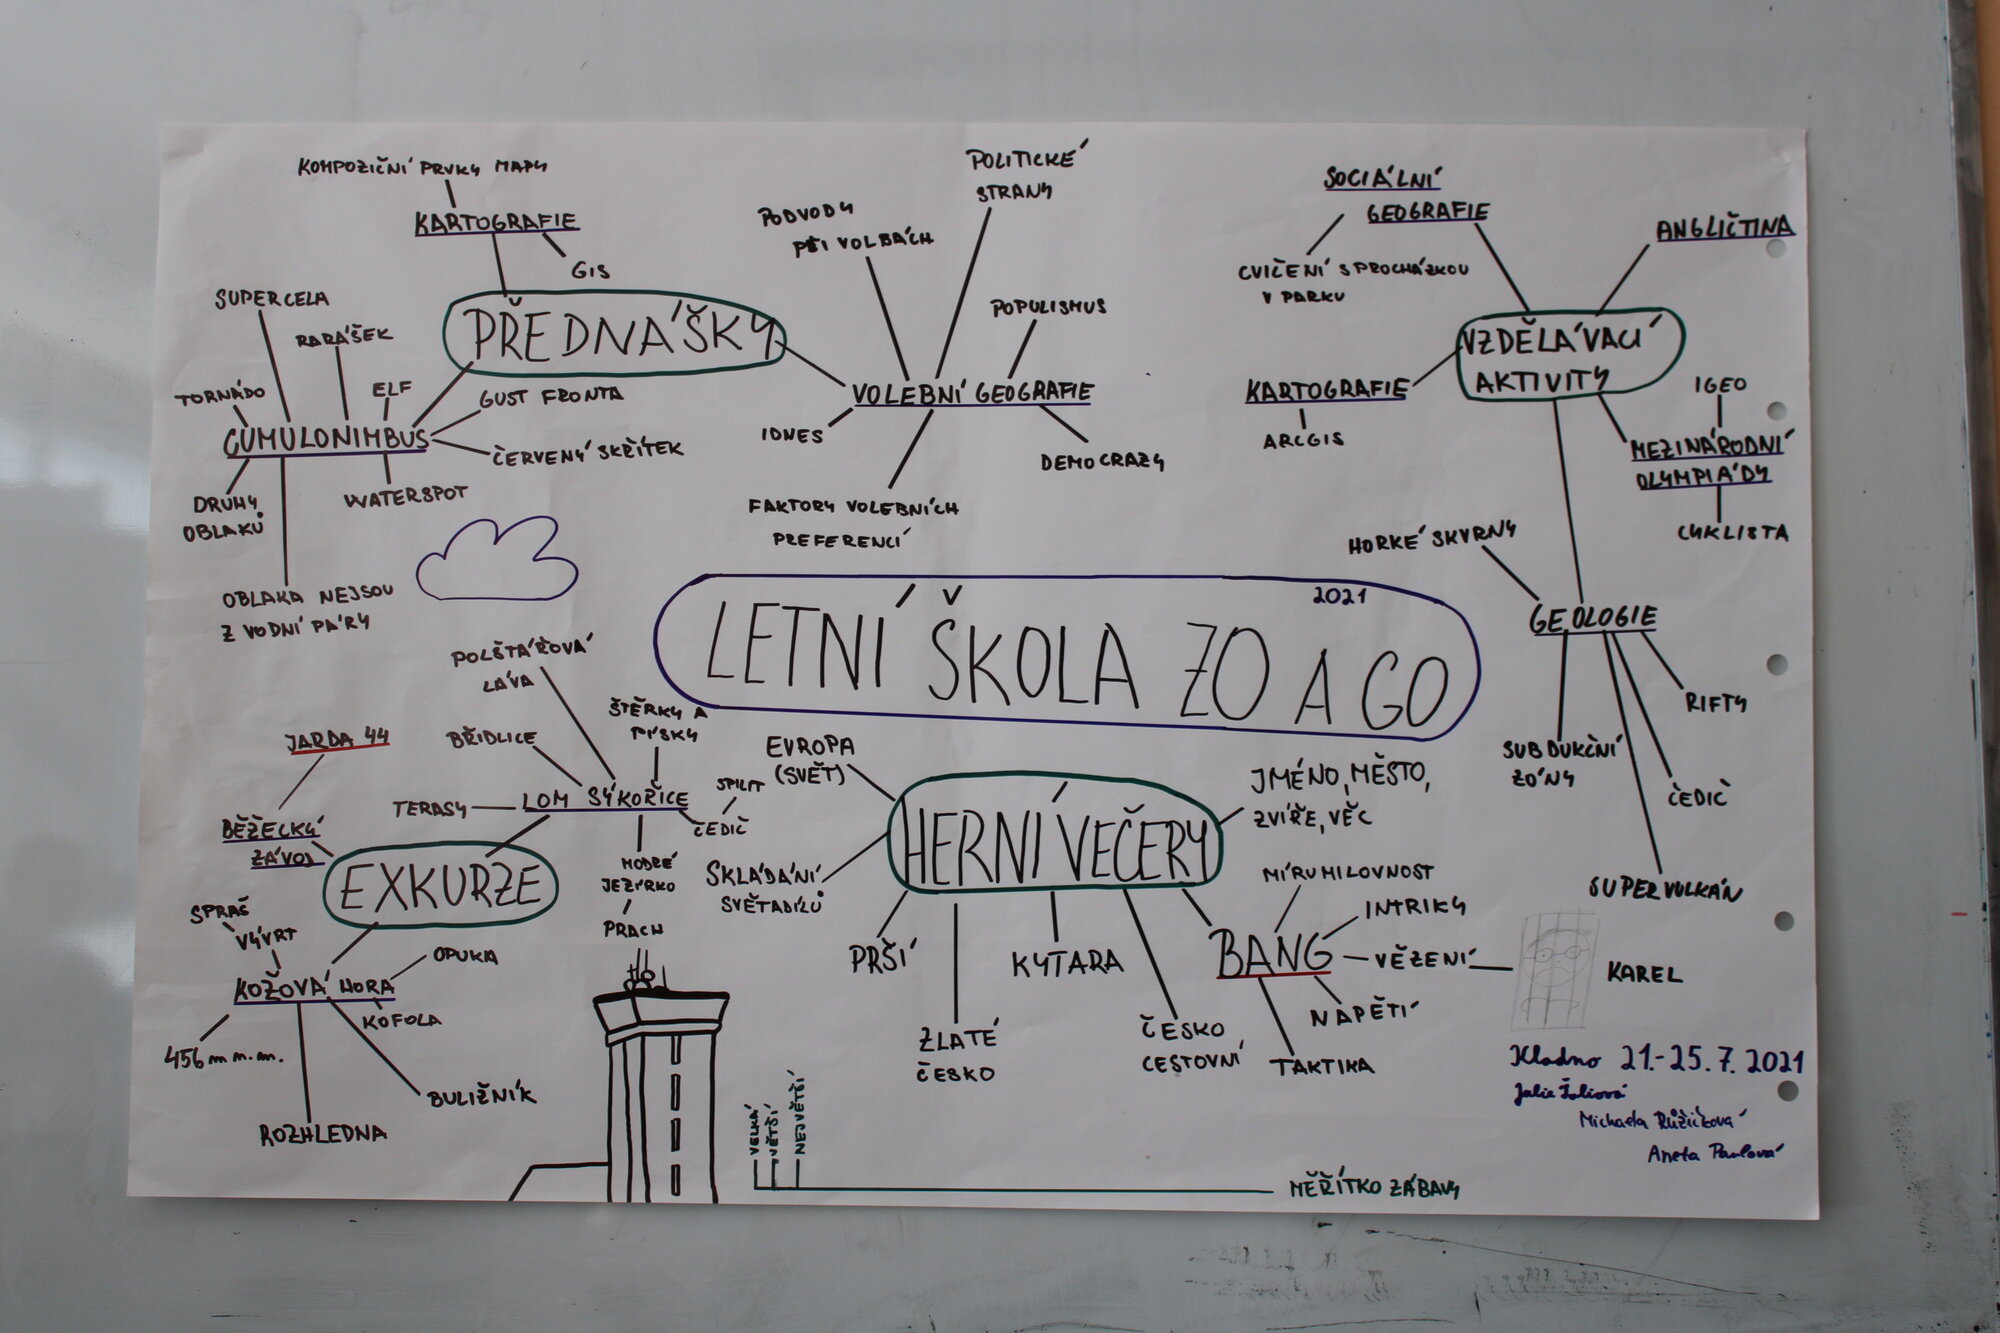 KOMPOZIČNÍ PRVKY MAPY
KARTOGRAFIE
GIS
PŘEDNÁŠKY
SUPERCELA
RARÁŠEK
TORNÁDO
ELF
GUST FRONTA
CUMULONIMBUS
ČERVENÝ SKŘÍTEK
DRUHY
OBLAKŮ
WATERSPOT
OBLAKA NEJSOU
Z VODNÍ PÁRY
PODVODY
PŘI VOLBÁCH
POLITICKÉ
STRANY
POPULISMUS
VOLEBNÍ GEOGRAFIE
IDNES
DEMOCRAZY
FAKTORY VOLEBNÍCH
PREFERENCÍ
SOCIÁLNÍ
GEOGRAFIE
CVIČENÍ S PROCHÁZKOU
V PARKU
ANGLIČTINA
VZDĚLÁVACÍ
AKTIVITY
KARTOGRAFIE
ARCGIS
IGEO
MEZINÁRODNÍ
OLYMPIÁDY
CYKLISTA
HORKÉ SKVRNY
GEOLOGIE
RIFTY
SUBDUKČNÍ
ZÓNY
ČEDIČ
SUPERVULKÁN
2021
LETNÍ ŠKOLA ZO A GO
POLŠTÁŘOVÁ
LÁVA
ŠTĚRKY A
PÍSKY
BŘIDLICE
JARDA 44
TERASY
LOM SÝKOŘICE
SPILIT
ČEDIČ
BĚŽECKÝ
ZÁVOD
MODRÉ
JEZÍRKO
PRACH
EXKURZE
SPRAŠ
VÝVRT
OPUKA
KOŽOVÁ HORA
KOFOLA
456 m n. m.
BULIŽNÍK
ROZHLEDNA
EVROPA
(SVĚT)
JMÉNO, MĚSTO,
ZVÍŘE, VĚC
HERNÍ VEČERY
SKLÁDÁNÍ
SVĚTADÍLŮ
PRŠÍ
ZLATÉ
ČESKO
KYTARA
ČESKO
CESTOVNÍ
MÍRUMILOVNOST
INTRIKY
BANG
VĚZENÍ
KAREL
NAPĚTÍ
TAKTIKA
Kladno 21.-25. 7. 2021
Julie Žaliová
Michaela Růžičková
Aneta Pavlová
VELKÁ
VĚTŠÍ
NEJVĚTŠÍ
MĚŘÍTKO ZÁBAVY